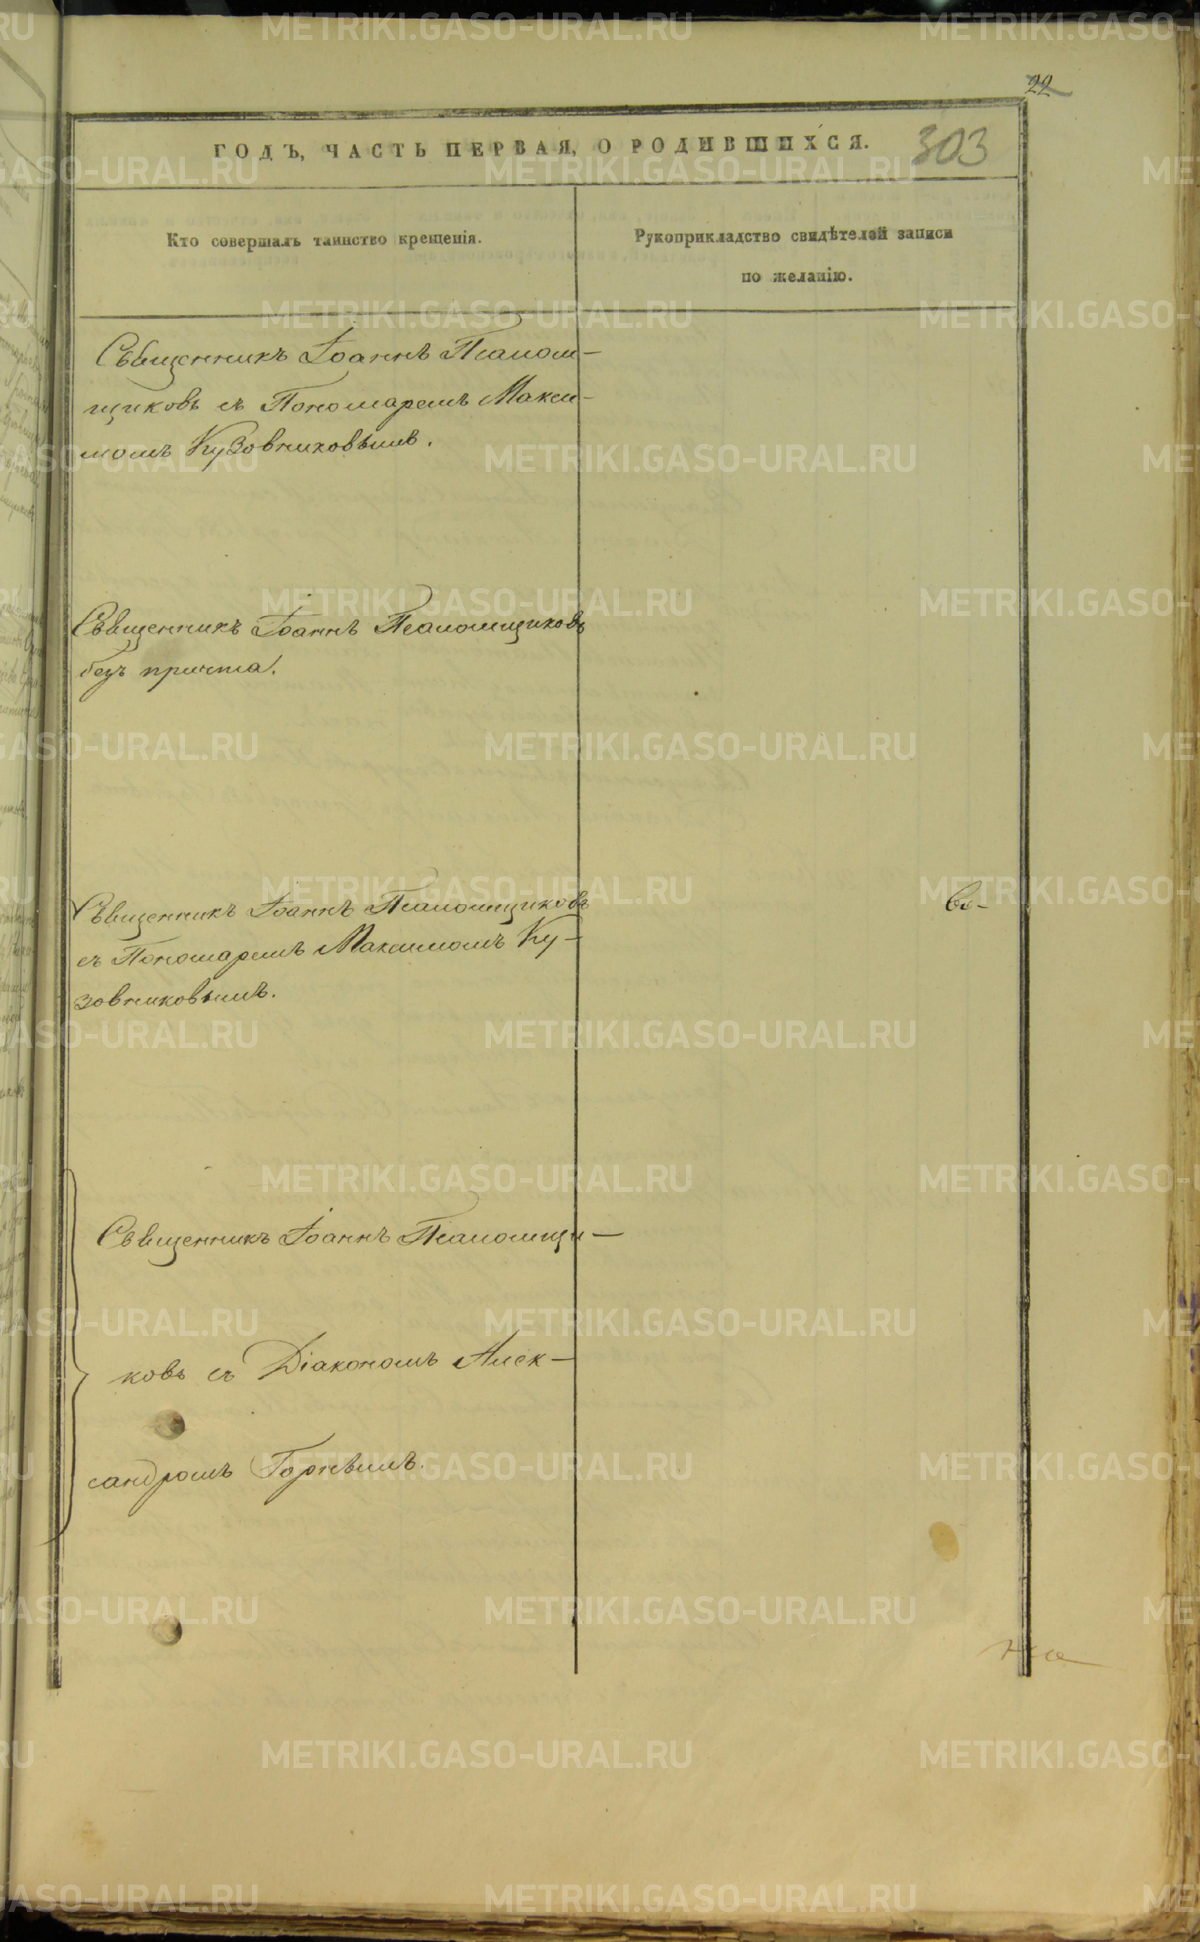 22
ГОДЪ, ЧАСТЬ ПЕРВАЯ, О РОДИВШИХСЯ. 303
Кто совершалъ таинство крещенія.
Рукоприкладство свидѣтелей записи
по желанію.
Священникъ Іоаннъ Псаломщиковъ
Священникъ Іоаннъ Псалом-
щиковъ съ Пономаремъ Макси-
момъ Кузовниковымъ.
Священникъ Іоаннъ Псаломщиковъ
безъ причта.
Священникъ Іоаннъ Псаломщиковъ
съ Пономаремъ Максимомъ Ку-
зовниковымъ.
Священникъ Іоаннъ Псаломщи-
ковъ съ Діакономъ Алек-
сандромъ Горнымъ.
METRIKI.GASO-URAL.RU